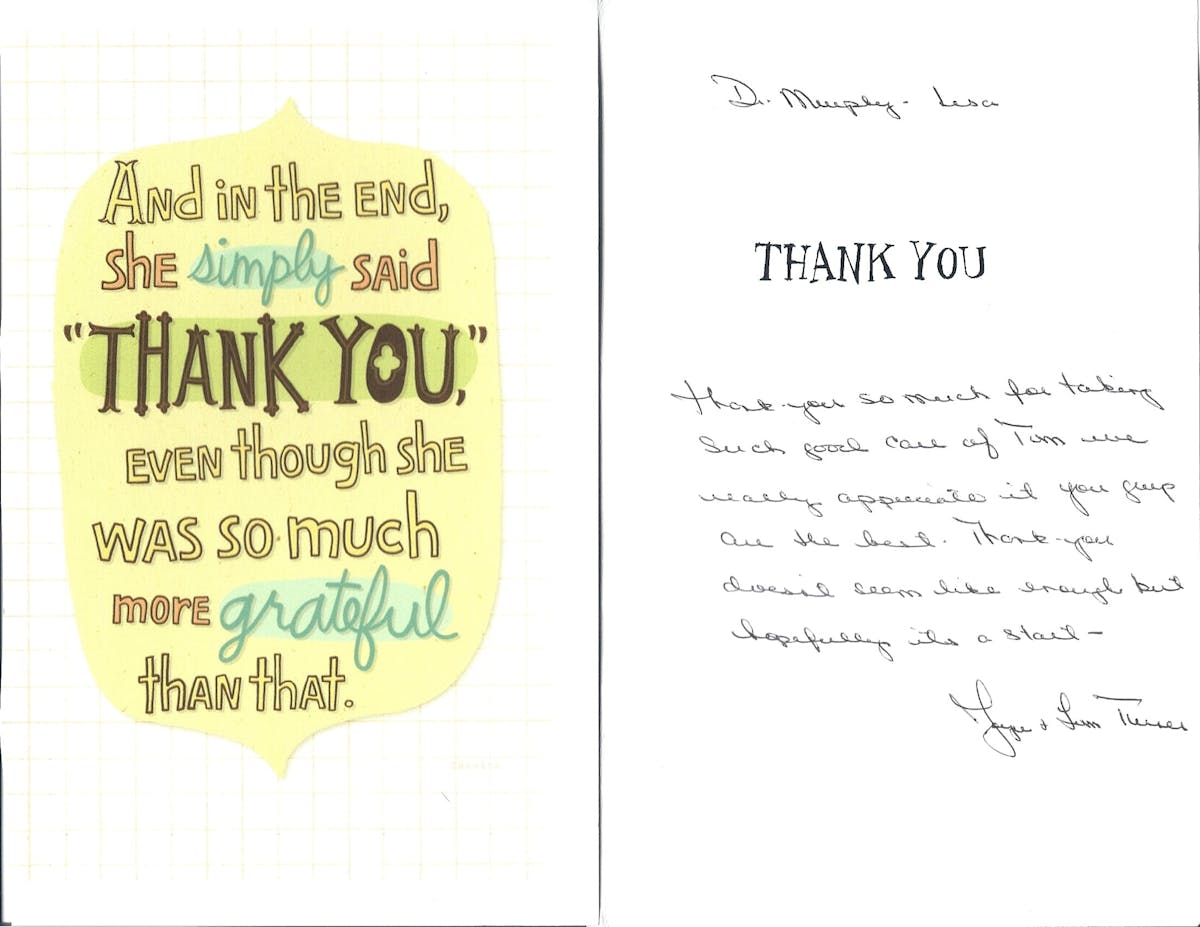 And in the end,
she simply said
"THANK YOU,"
even though she
was so much
more grateful
than that.
Dr. Murphy - Lisa
THANK YOU
Thank-you so much for taking
such good care of Tom we
really appreciate it you guys
are the best. Thank-you
doesn't seem like enough but
hopefully its a start -
Tom